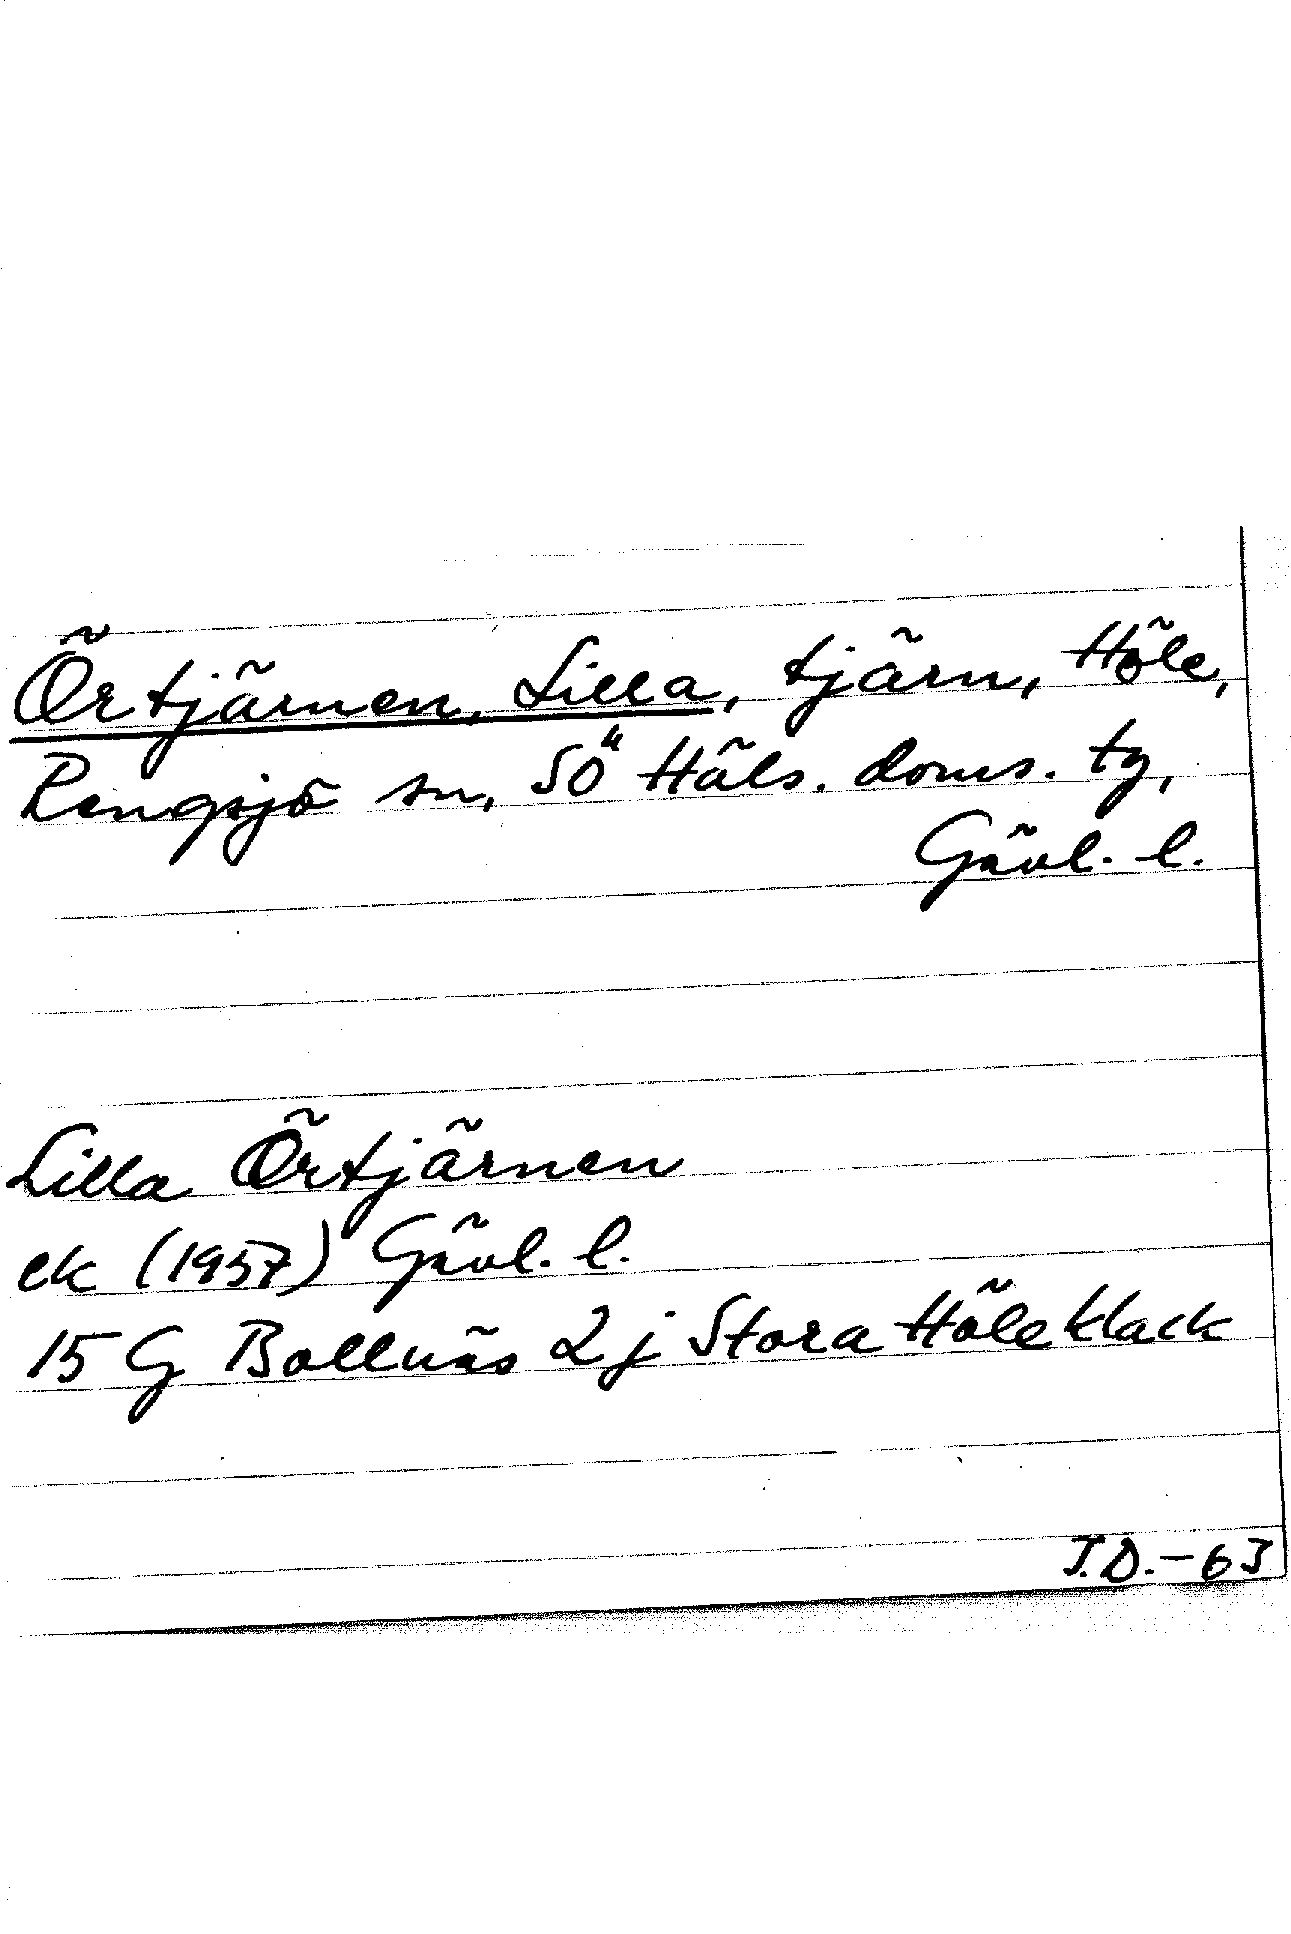 Örtjärnen, Lilla, tjärn, Höle,
Rengsjö sn, SÖ Häls. doms. tg,
Gävl. l.
Lilla Örtjärnen
ek (1957) Gävl. l.
15 G Bollnäs 2 j Stora Höleklack
J.D.-63